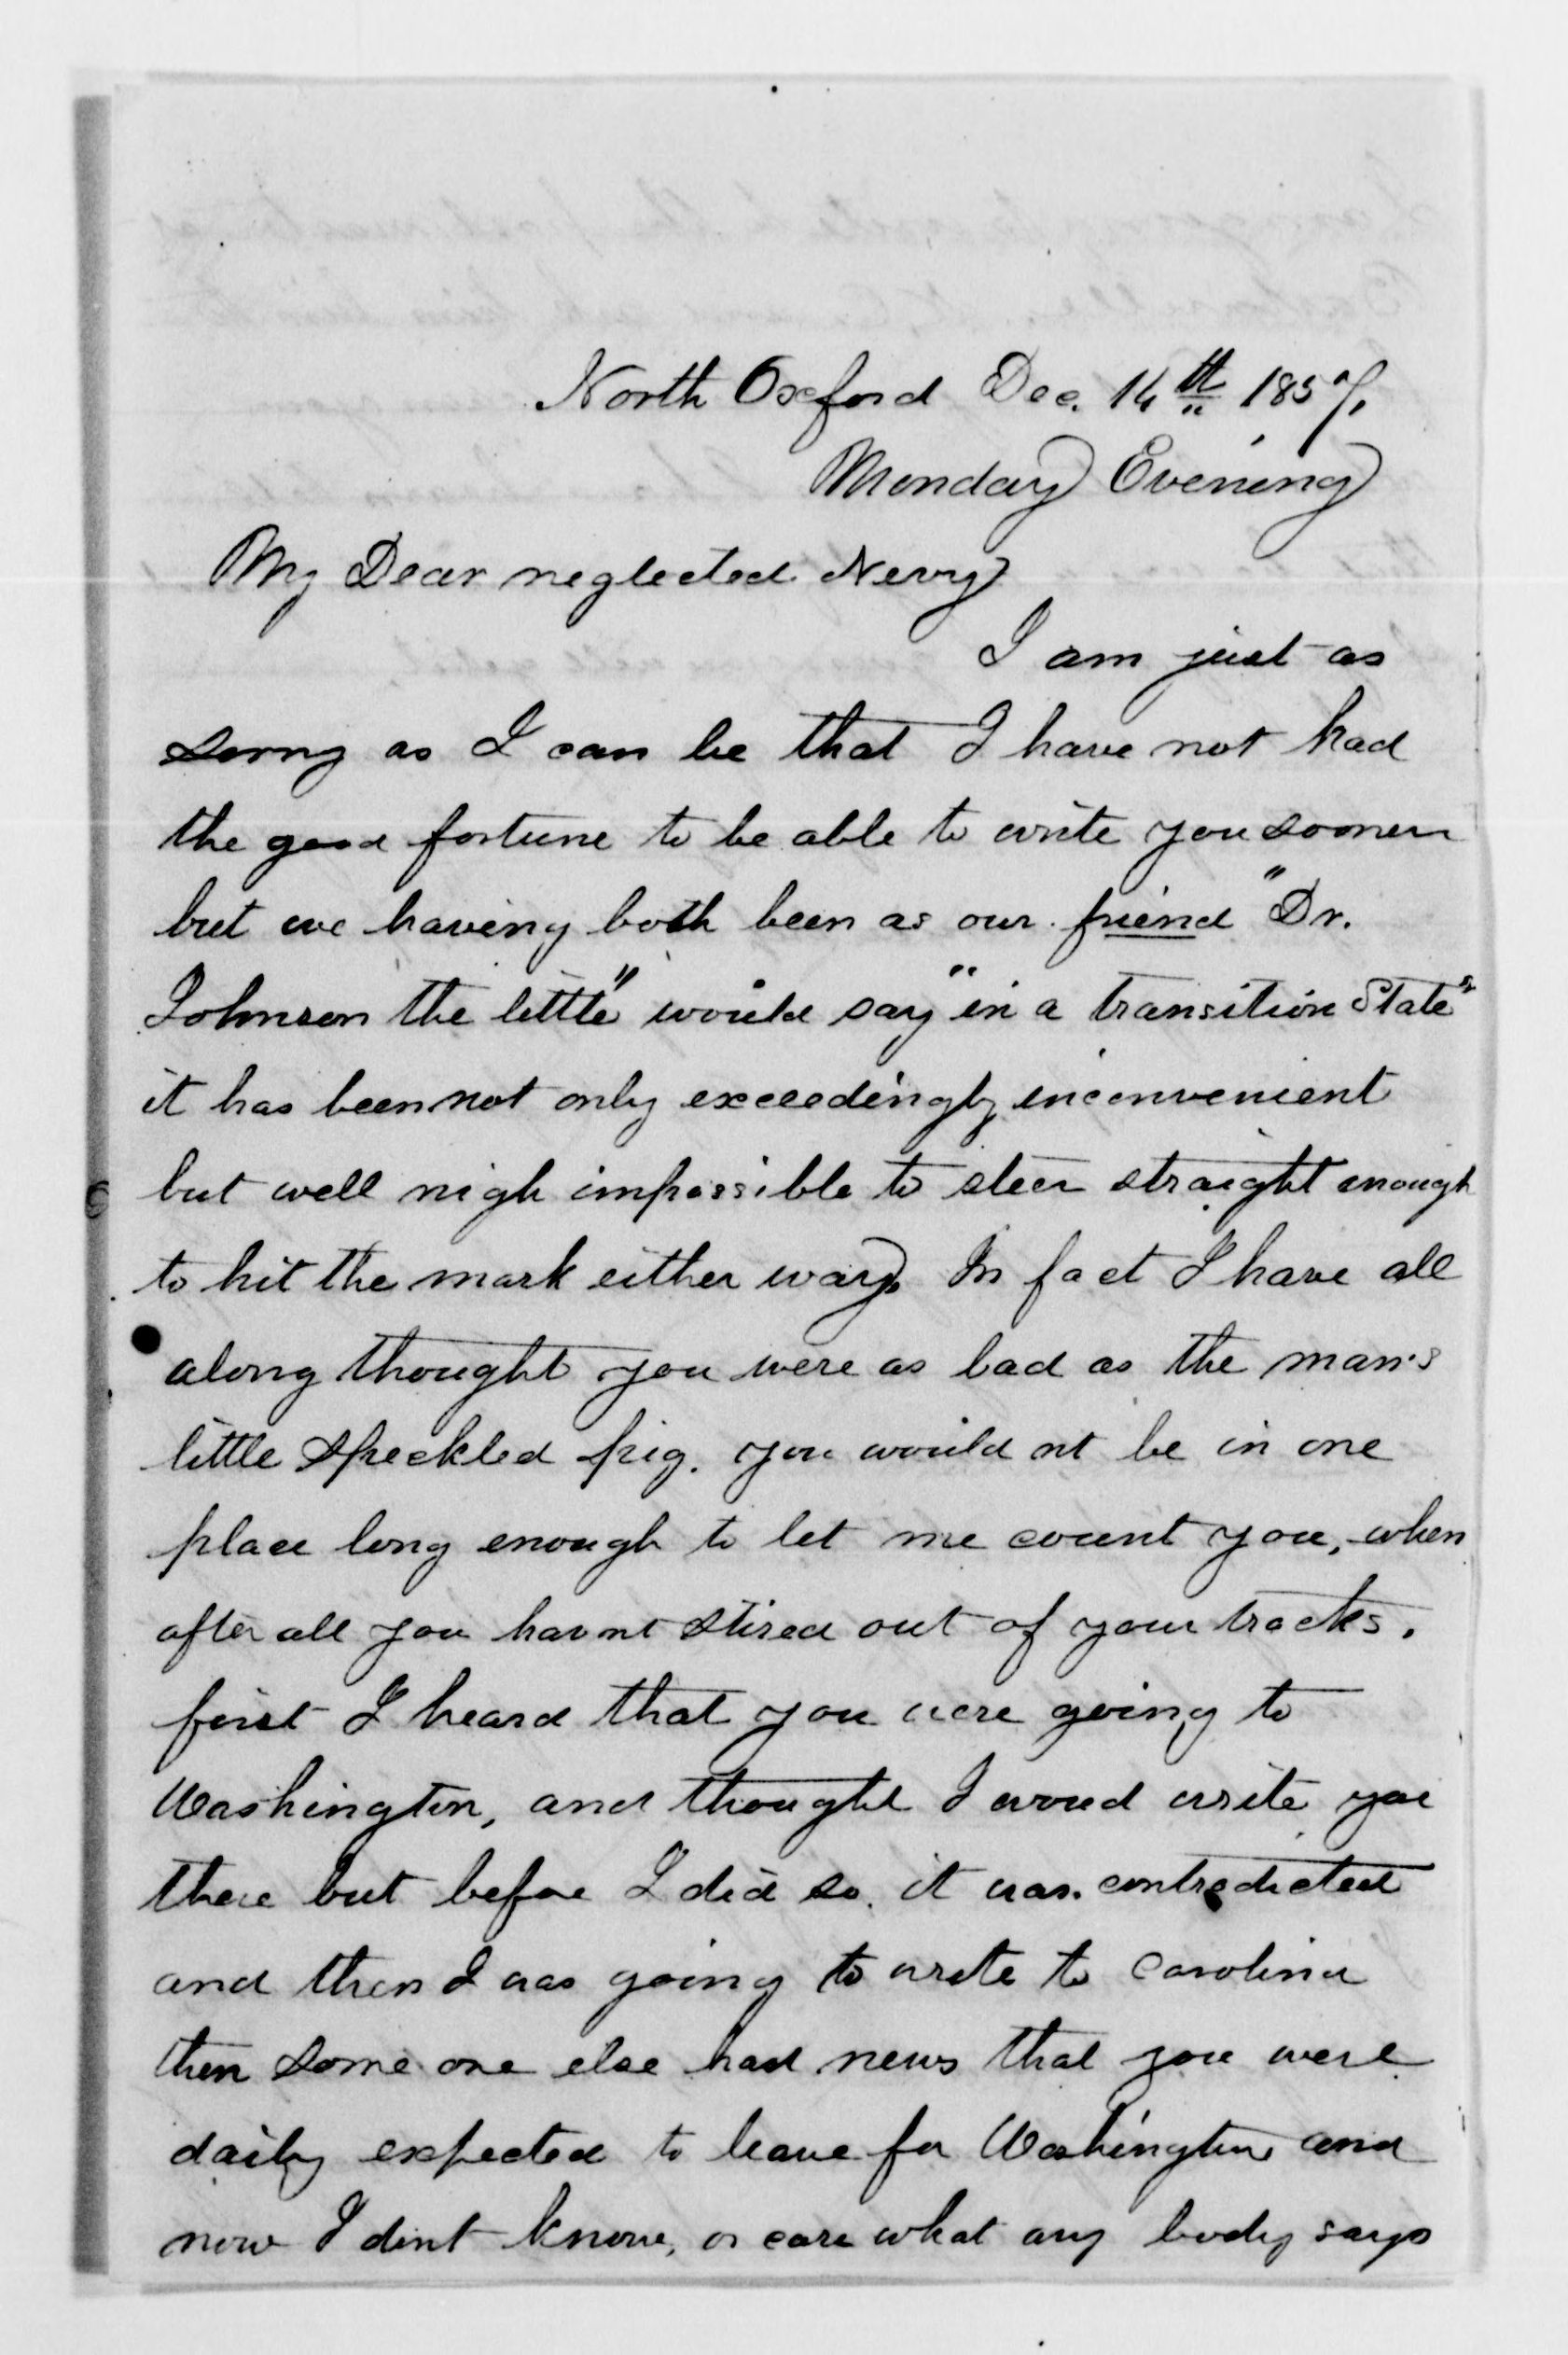 North Oxford Dec. 14th 1857.
Monday Evening
My Dear neglected Nervy
I am just as
sorry as I can be that I have not had
the good fortune to be able to write you sooner
but we having both been as our friend "Dr.
Johnson the little" would say "in a transition State"
it has been not only exceedingly inconvenient
but well nigh impossible to steer straight enough
to hit the mark either way. In fact I have all
along thought you were as bad as the man's
little speckled pig. you would nt be in one
place long enough to let me count you, when
after all you havnt stired out of your tracks.
first I heard that you were going to
Washington, and thought I woud write you
there but before I did so. it was contradicted
and then I was going to write to Carolina
then some one else had news that you were
daily expected to leave for Washington and
now I dont know, or care what any body says